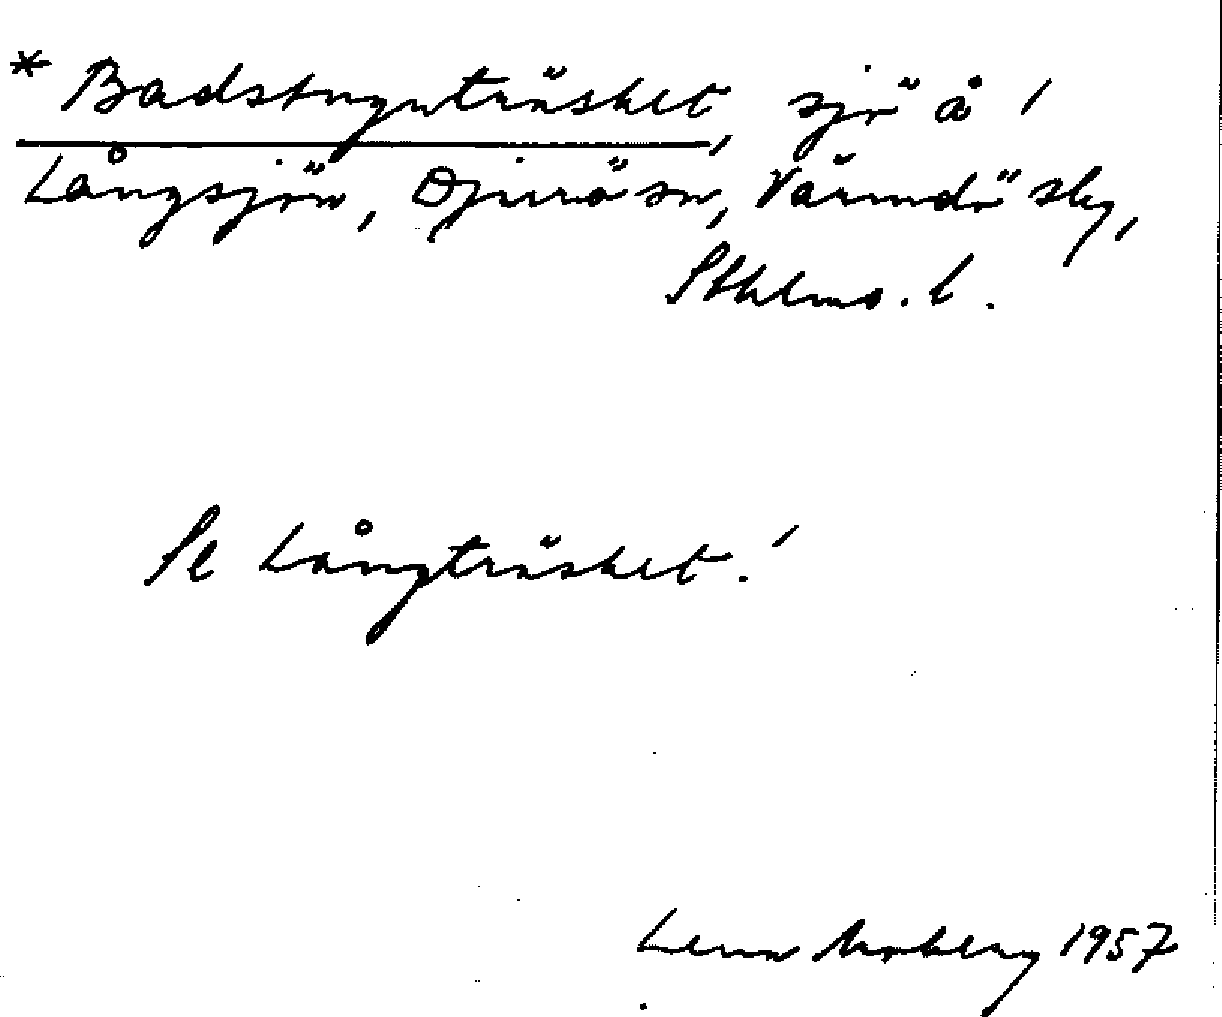 * Badstuguträsket, sjö å /
Långsjön, Djurö sn, Värmdö sky,
Sthlms. l.
Se Långträsket.
Lena Moberg 1957